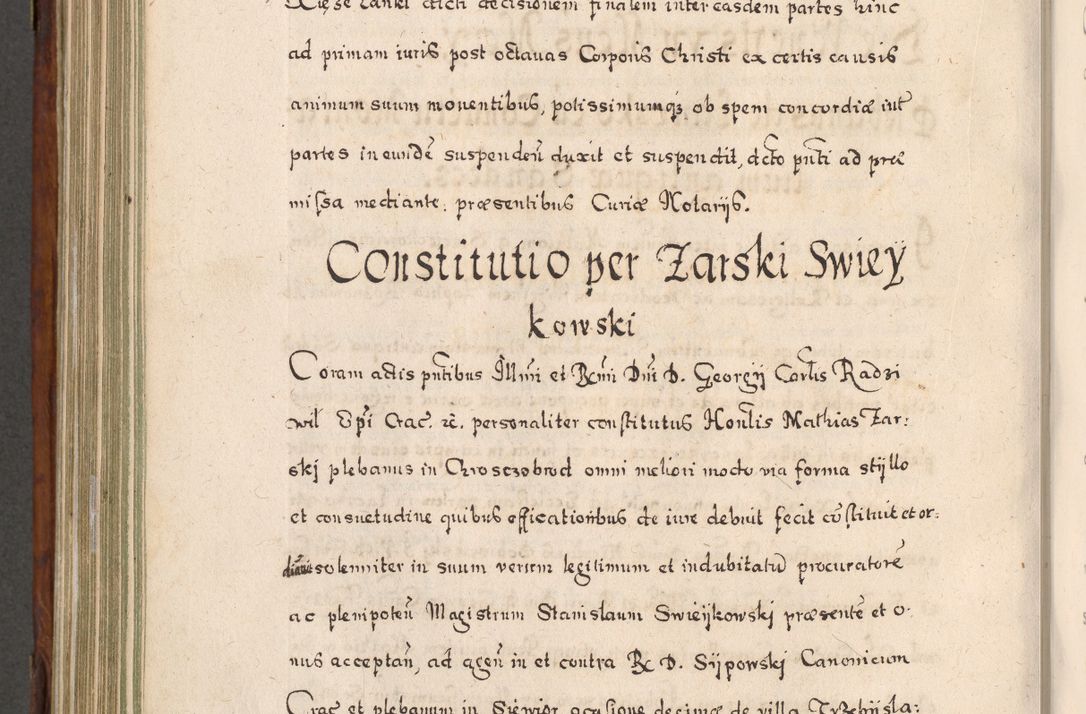 decisionem finalem inter easdem partes hinc
ad primam iuris post octauas Corporis Christi ex certis causis
animum suum mouentibus, potissimumqȝ ob spem concordiæ int̃
partes in eundẽ suspendeñ duxit et suspendit, dcto pñti ad præ
missa mediante, præsentibus Curiæ Notarijs.
Constitutio per Zarski Swiey
kowski
Coram actis pñtibus Illmi et Rmi Dni D. Georgij Carlis Radzi
wil Epi Crac. rc. personaliter constitutus Honlis Mathias Zar:
skj plebanus in Chrosczobrod omni meliori modo via forma stÿllo
et consuetudine quibus efficatioribus de iure debuit fecit cõstituit et or:
solemniter in suum verum legitimum et indubitatũ procuratorẽ
ac plenipoteñ Magistrum Stanislaum Swieÿkowskj præsentẽ et o
nus acceptañ, ad ageñ in et contra R D. Sÿpowskj Canonicum
Crac et plebanum in Siewior occasione decimæ de villa Trzebÿsla: